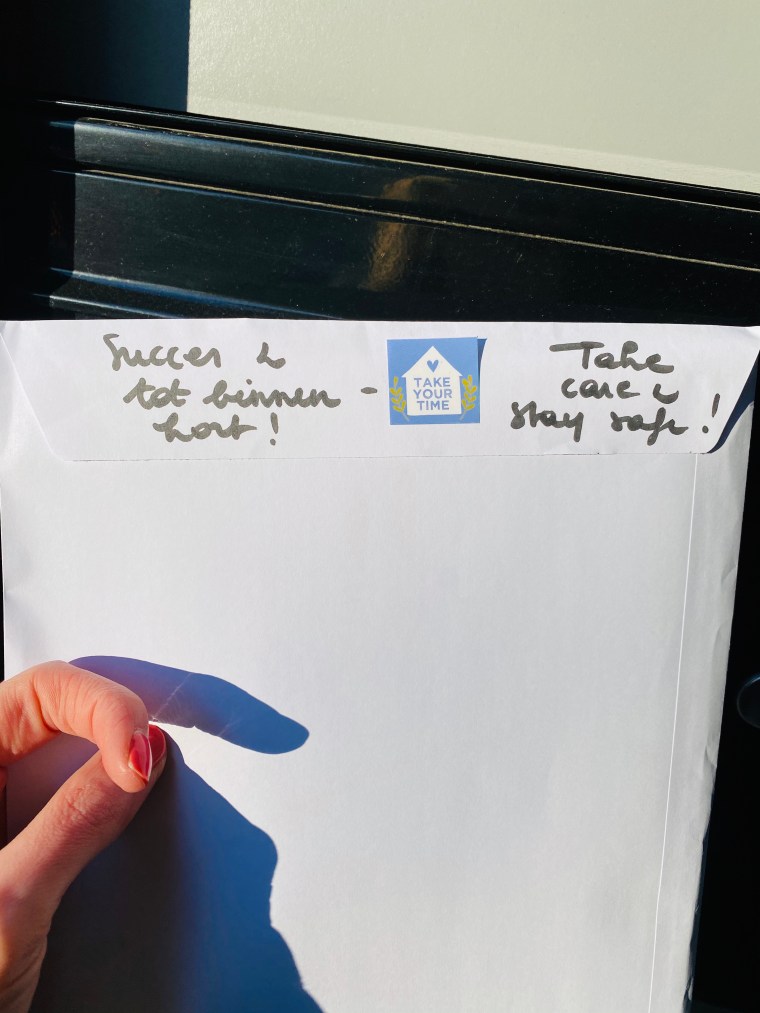 Succes &
tot binnen -
kort!
TAKE
YOUR
TIME
Take
care &
stay safe!